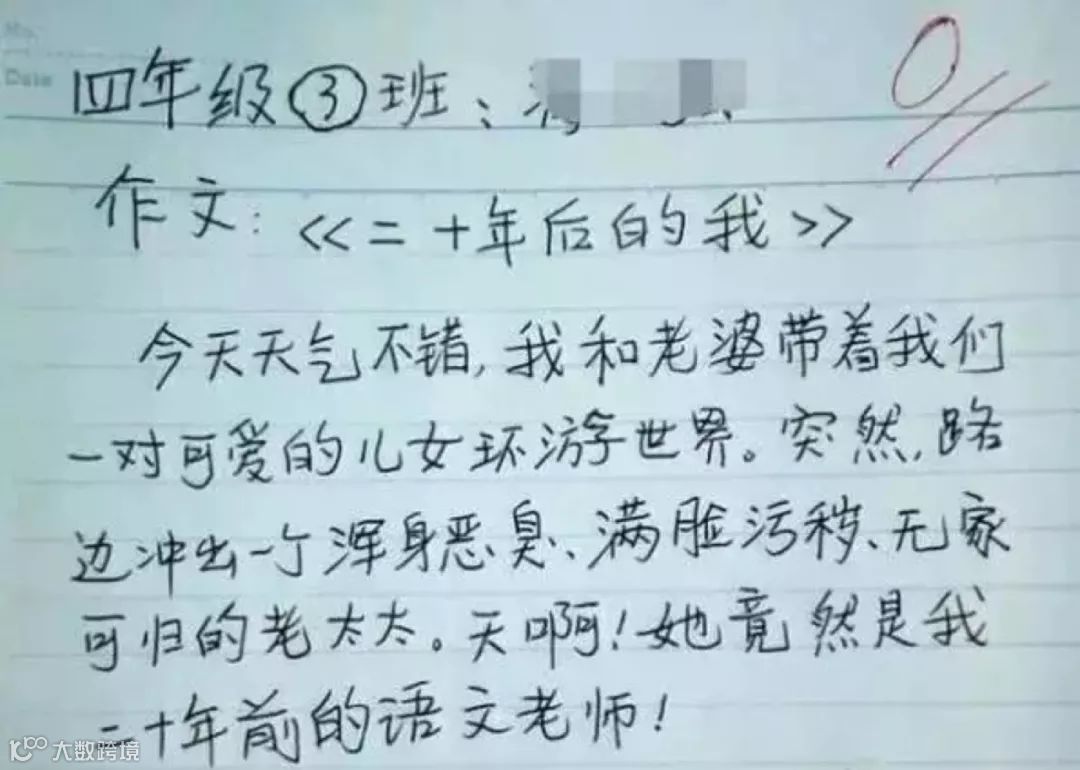 No.
Date
四年级③班:
0
作文:<<二十年后的我>>
今天天气不错,我和老婆带着我们
一对可爱的儿女环游世界。突然,路
边冲出一个浑身恶臭、满脸污秽、无家
可归的老太太。天啊!她竟然是我
二十年前的语文老师!
大数跨境